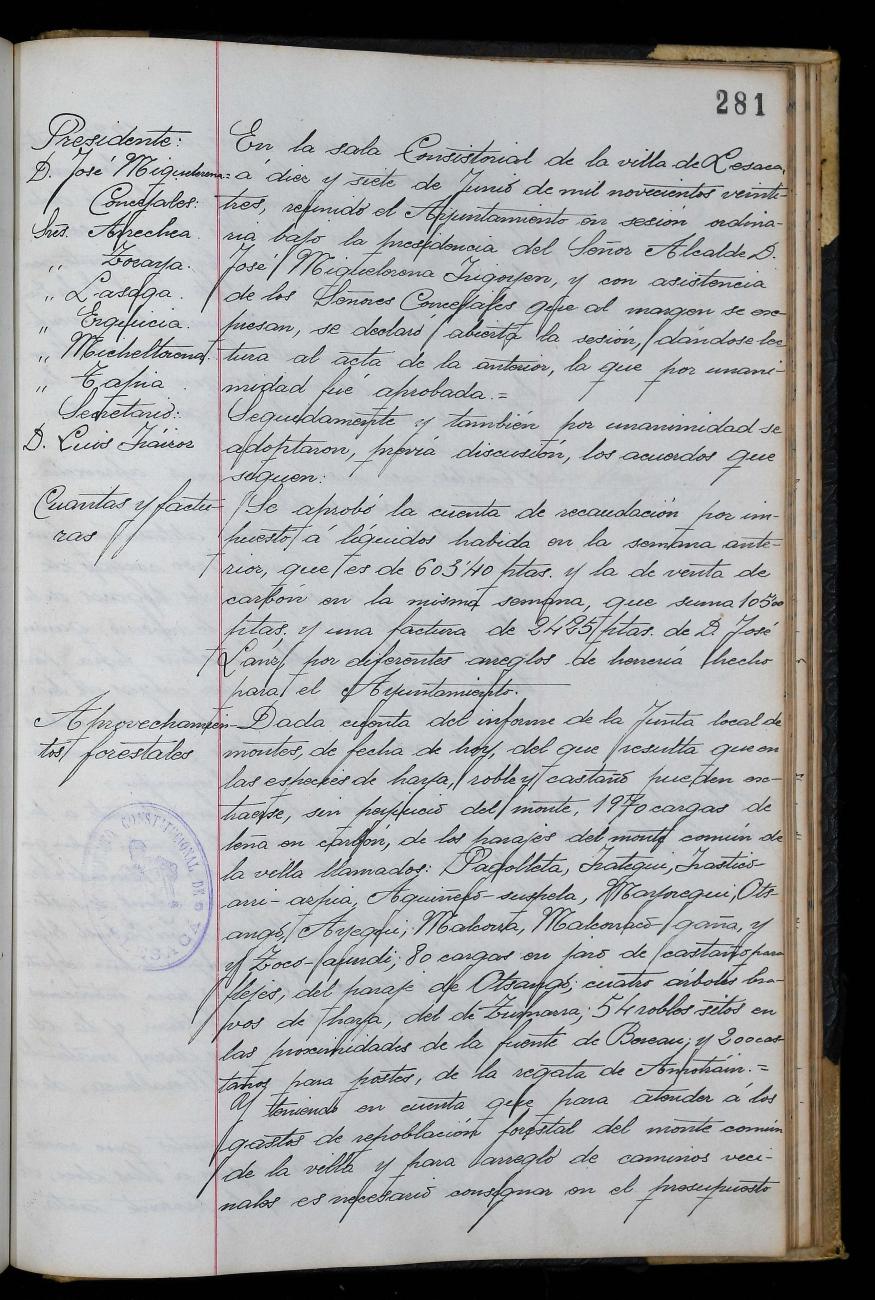 281
Presidente:
D. José Miguelorena=
Concejales:
Sres. Apechea.
,, Zocaya.
,, Lasaga.
,, Erquicia.
,, Micheltorena.
,, Tapia.
Secretario:
D. Luis Iráizoz
En la sala Consistorial de la villa de Lesaca,
á diez y siete de Junio de mil novecientos veinti-
tres, reunido el Ayuntamiento en sesión ordina-
ria bajo la presidencia del Señor Alcalde D.
José Miguelorena Irigoyen, y con asistencia
de los Señores Concejales que al margen se ex-
presan, se declaró abierta la sesión, dándose lec-
tura al acta de la anterior, la que por unani-
midad fué aprobada.=
Seguidamente y también por unanimidad se
adoptaron, previa discusión, los acuerdos que
siguen:
Cuentas y factu-
ras
Se aprobó la cuenta de recaudación por im-
puesto a líquidos habida en la semana ante-
rior, que es de 603'40 ptas. y la de venta de
carbón en la misma semana, que suma 105'00
ptas. y una factura de 24'25 ptas. de D. José
por diferentes arreglos de herrería hecho
para el Ayuntamiento.
Aprovechamien-
tos forestales
Dada cuenta del informe de la Junta local de
montes, de fecha de hoy, del que resulta que en
las especies de haya, roble y castaño pueden ex-
traerse, sin perjuicio del monte, 1970 cargas de
leña en carbón, de los parajes del monte común de
la villa llamados: Pagolleta, Irategui,
Ots-
ango, Ayegui, Malcorra, gaña, y
y Zoco-aundi; 80 cargas en jaro de castaño para
flejes, del paraje de Otsango; cuatro árboles bra-
vos de haya, del de Zumarra; 54 robles sitos en
las proximidades de la fuente de Bereau; y 200 cas-
taños para postes, de la regata de =
Y teniendo en cuenta que para atender á los
gastos de repoblación forestal del monte común
de la villa y para arreglo de caminos veci-
nales es necesario consignar en el presupuesto
CONSTITUCIONAL DE